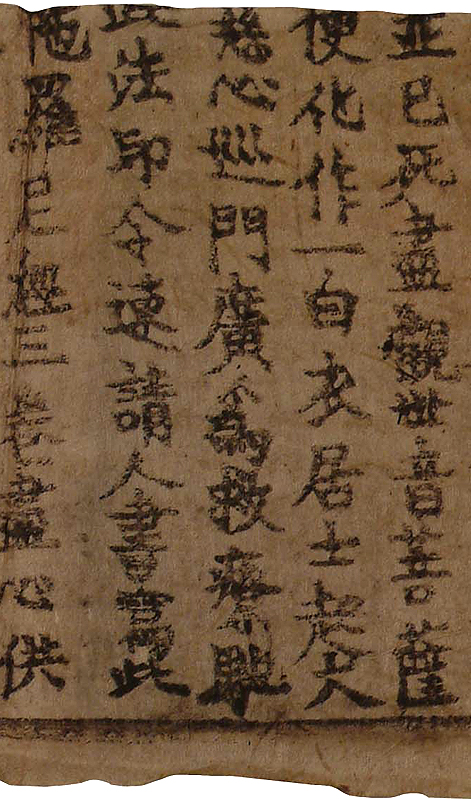 並已死盡觀世音菩薩
便化作一白衣居士起大
慈心巡門廣為救療興
法印令速請人書寫此
陀羅尼經三卷盡心供